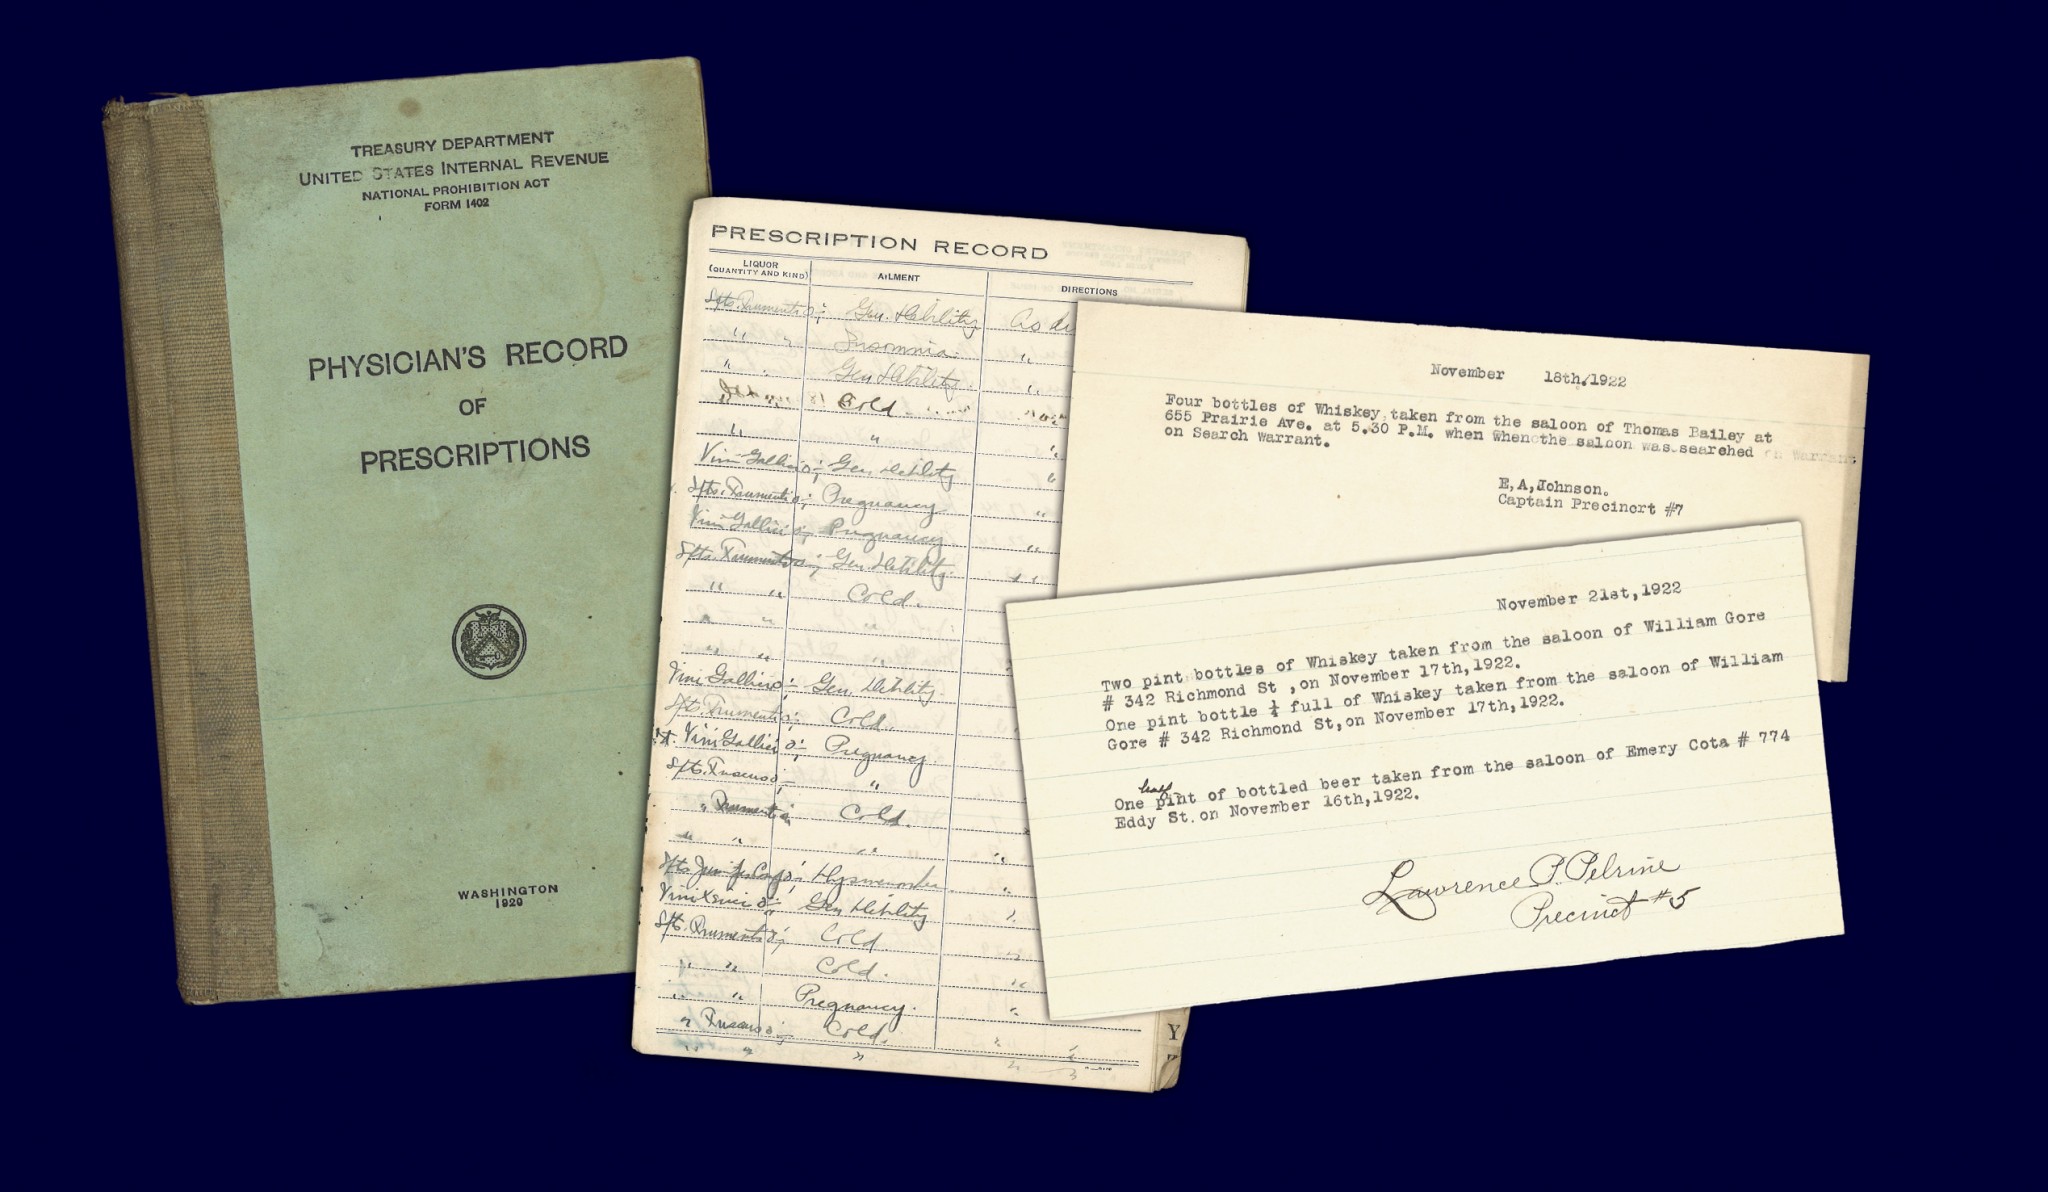 TREASURY DEPARTMENT
UNITED STATES INTERNAL REVENUE
NATIONAL PROHIBITION ACT
FORM 1402
PHYSICIAN'S RECORD
OF
PRESCRIPTIONS
WASHINGTON
1920
PRESCRIPTION RECORD
LIQUOR
(QUANTITY AND KIND)
AILMENT
DIRECTIONS
Spts. Frumenti Gen. Debility As di
" " Insomnia. "
" " Gen Debility. "
Cold
" " "
Vini Gallici Gen Debility "
Spts. Frumenti Pregnancy "
Vini Gallici Pregnancy "
Spts. Frumenti Gen. Debility. " "
" " Cold.
" " "
" " "
Vini Gallici Gen. Debility.
Spts. Frumenti Cold.
Vini Gallici Pregnancy
Spts. "
" Frumenti Cold.
" " "
Spts. Dysmenorrhea "
Vini Xerici Gen Debility "
Spts. Frumenti Cold. "
" " Cold. "
" " Pregnancy. "
" Cold. "
" " " "
November 18th/1922
Four bottles of Whiskey taken from the saloon of Thomas Bailey at
655 Prairie Ave. at 5.30 P.M. when When the saloon was searched on Warrant
on Search Warrant.
E,A,Johnson.
Captain Precincrt #7
November 21st,1922
Two pint bottles of Whiskey taken from the saloon of William Gore
# 342 Richmond St ,on November 17th,1922.
One pint bottle ¼ full of Whiskey taken from the saloon of William
Gore # 342 Richmond St,on November 17th,1922.
half
One pint of bottled beer taken from the saloon of Emery Cota # 774
Eddy St. on November 16th,1922.
Lawrence P. Pelrine
Precinct #5